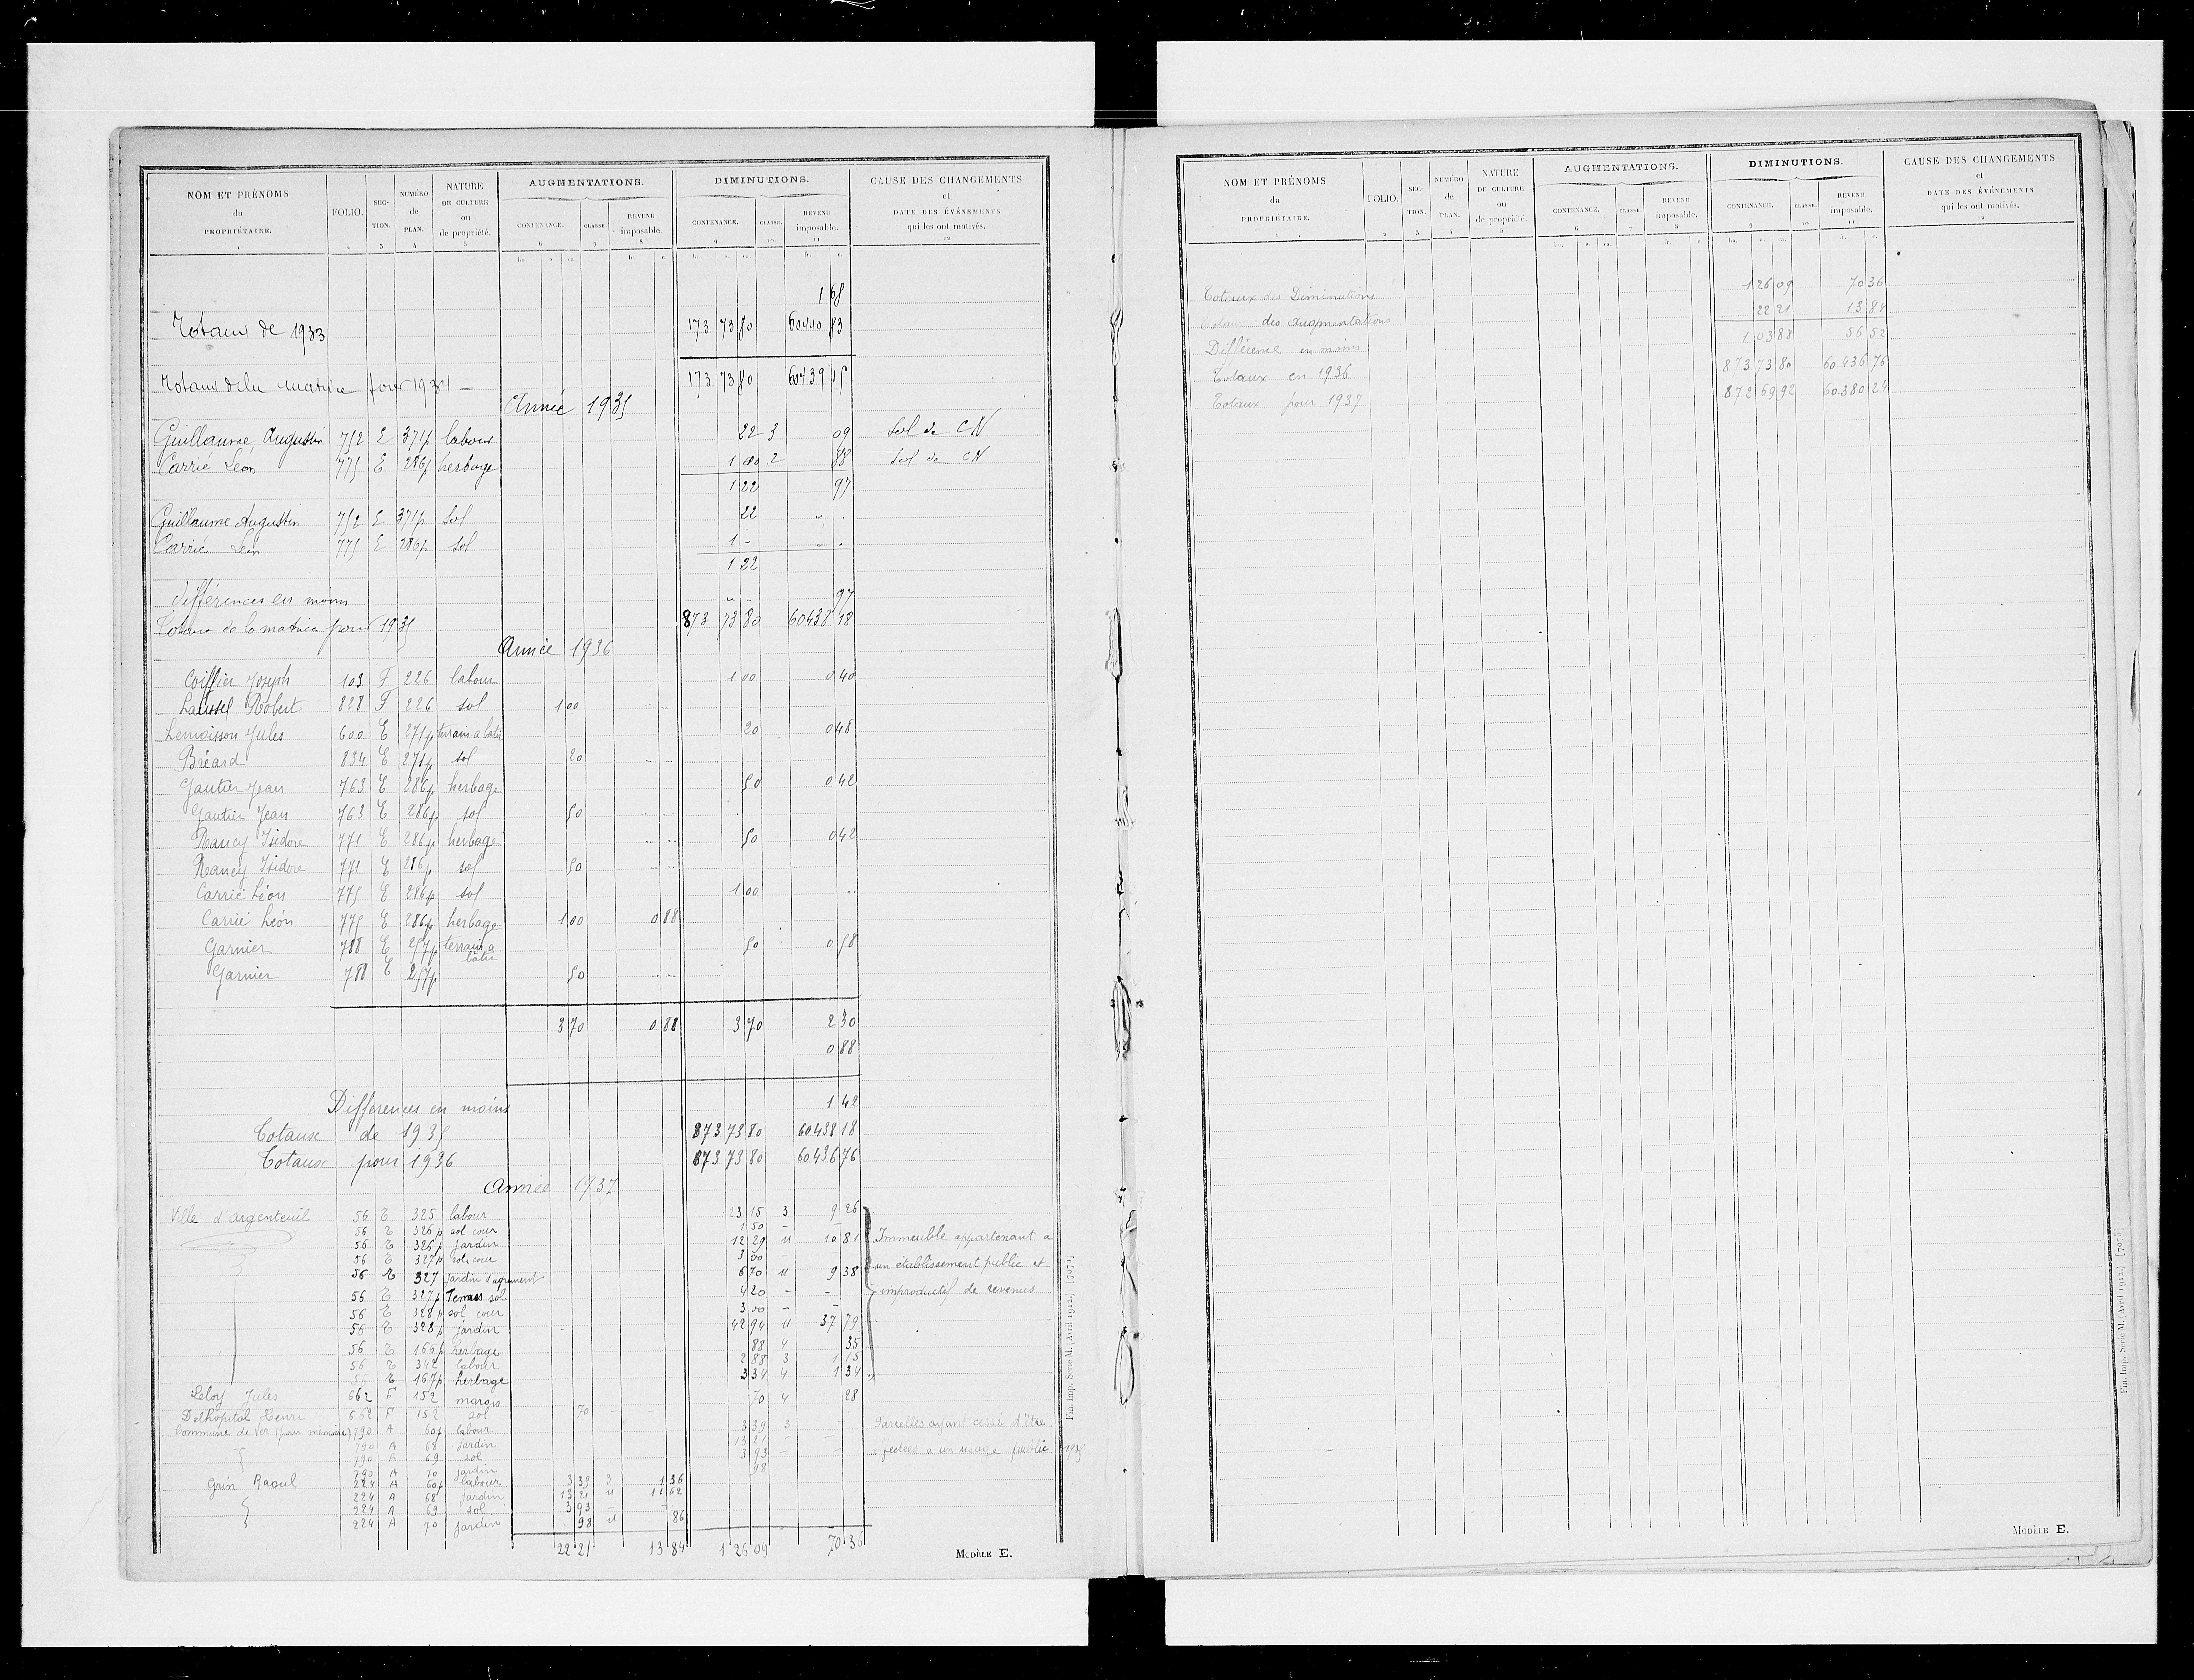 NOM ET PRÉNOMS du PROPRIÉTAIRE. 1 | FOLIO. 2 | SECTION. 3 | NUMÉRO de PLAN. 4 | NATURE DE CULTURE ou de propriété. 5 | AUGMENTATIONS. CONTENANCE. 6 CLASSE 7 REVENU imposable. 8 | DIMINUTIONS. CONTENANCE. 9 CLASSE. 10 REVENU imposable. 11 | CAUSE DES CHANGEMENTS et DATE DES ÉVÉNEMENTS qui les ont motivés. 12
1 68
Totaux de 1933 173 73 80 60440 83
Totaux de la matrice pour 1934 – 173 73 80 60439 15
Année 1935
Guillaume Augustin 752 E 371p labour 22 3 09 Sol de CN
Carrié Léon 775 E 286p herbage 1 00 2 88 Sol de CN
1 22 97
Guillaume Augustin 752 E 371p Sol 22 " "
Carrié Léon 775 E 286p sol 1 - " "
1 22
différences en moins " " 97
Totaux de la matrice pour 1935 873 73 80 60438 18
Année 1936
Coiffier Joseph 103 F 226 labour 1 00 0 40
Laussel Robert 828 F 226 sol 1 00
Lemoisson Jules 600 E 271p terrain a batir 20 0 48
Bréard 834 E 271p sol 20
Gautier Jean 763 E 286p herbage 50 0 42
Gautier Jean 763 E 286p sol 50
Nancy Isidore 771 E 286p herbage 50 0 42
Nancy Isidore 771 E 286p sol 50
Carrié Léon 775 E 286p sol 1 00
Carrié Léon 775 E 286p herbage 1 00 0 88
Garnier 788 E 257p terrain a bâtir 50 0 58
Garnier 788 E 257p 50
3 70 0 88 3 70 2 30
0 88
Différences en moins 1 42
Totaux de 1935 873 73 80 60438 18
Totaux pour 1936 873 73 80 60436 76
Année 1937
Ville d'Argenteuil 56 E 325 labour 23 15 3 9 26
56 E 326p sol cour 1 50 –
56 E 326p jardin 12 29 u 10 81 Immeuble appartenant a
56 E 327p sol cour 3 00 –
56 E 327 jardin d'agrement 6 70 u 9 38 un établissement public et
56 E 327p Tennis sol 4 20 – – improductif de revenus
56 E 328p sol cour 3 00 – –
56 E 328p jardin 42 94 u 37 79
56 E 166p herbage 88 4 35
56 E 342 labour 2 88 3 1 15
56 E 167p herbage 3 34 4 1 34
Leloy Jules 662 F 152 marais 70 4 28
Delhopital Henri 662 F 152 sol 70 –
Commune de Ver (pour mémoire) 790 A 60p labour 3 39 3 Parcelles ayant cessé d'être
790 A 68 jardin 13 21 –
790 A 69 sol 3 93 – affectées a un usage public 1935
790 A 70 jardin 98
Grin Raoul 224 A 60p labour 3 39 3 1 36
224 A 68 jardin 13 21 u 11 62
224 A 69 sol 3 93 –
224 A 70 jardin 98 u 86
22 21 13 84 1 26 09 70 36
MODÈLE E.
Fin. Imp. Série M. (Avril 1912.) [7075]
NOM ET PRÉNOMS du PROPRIÉTAIRE. 1 | FOLIO. 2 | SECTION. 3 | NUMÉRO de PLAN. 4 | NATURE DE CULTURE ou de propriété. 5 | AUGMENTATIONS. CONTENANCE. 6 CLASSE. 7 REVENU imposable. 8 | DIMINUTIONS. CONTENANCE. 9 CLASSE. 10 REVENU imposable. 11 | CAUSE DES CHANGEMENTS et DATE DES ÉVÉNEMENTS qui les ont motivés. 12
Totaux des Diminutions 1 26 09 70 36
Totaux des augmentations 22 21 13 84
Différence en moins 1 03 88 56 52
Totaux en 1936 873 73 80 60 436 76
Totaux pour 1937 872 69 92 60.380 24
Fin. Imp. Série M. (Avril 1912.) [7075]
MODÈLE E.